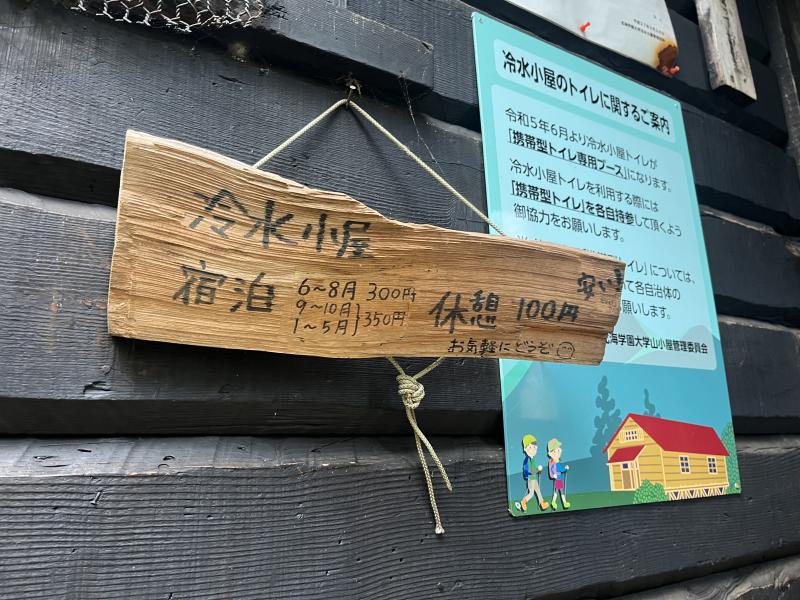 冷水小屋
宿泊
6～8月 300円
9～10月
1～5月
350円
休憩 100円
安い！
お気軽にどうぞ
冷水小屋のトイレに関するご案内
令和5年6月より冷水小屋トイレが
「携帯型トイレ専用ブース」になります。
冷水小屋トイレを利用する際には
「携帯型トイレ」を各自持参して頂くよう
御協力をお願いします。
イレ」については、
て各自治体の
願いします。
海学園大学山小屋管理委員会